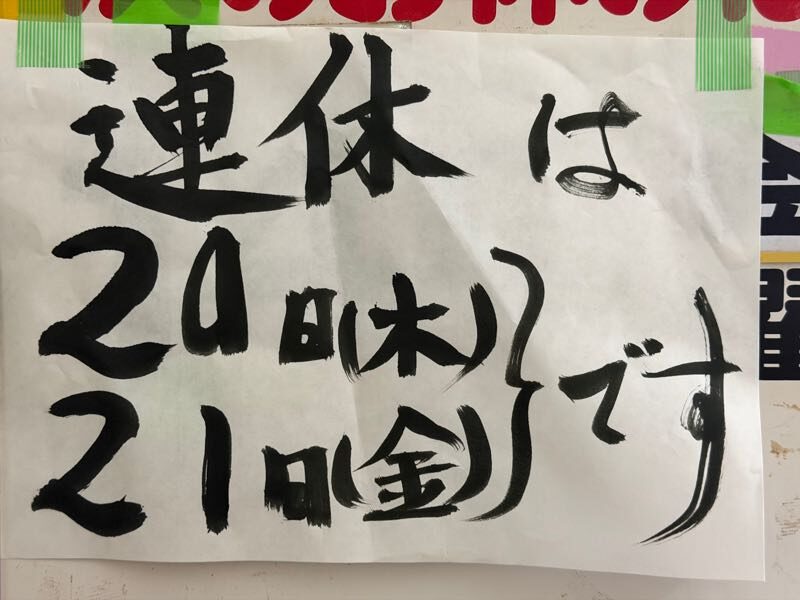 連休は
20日(木)
21日(金)
です